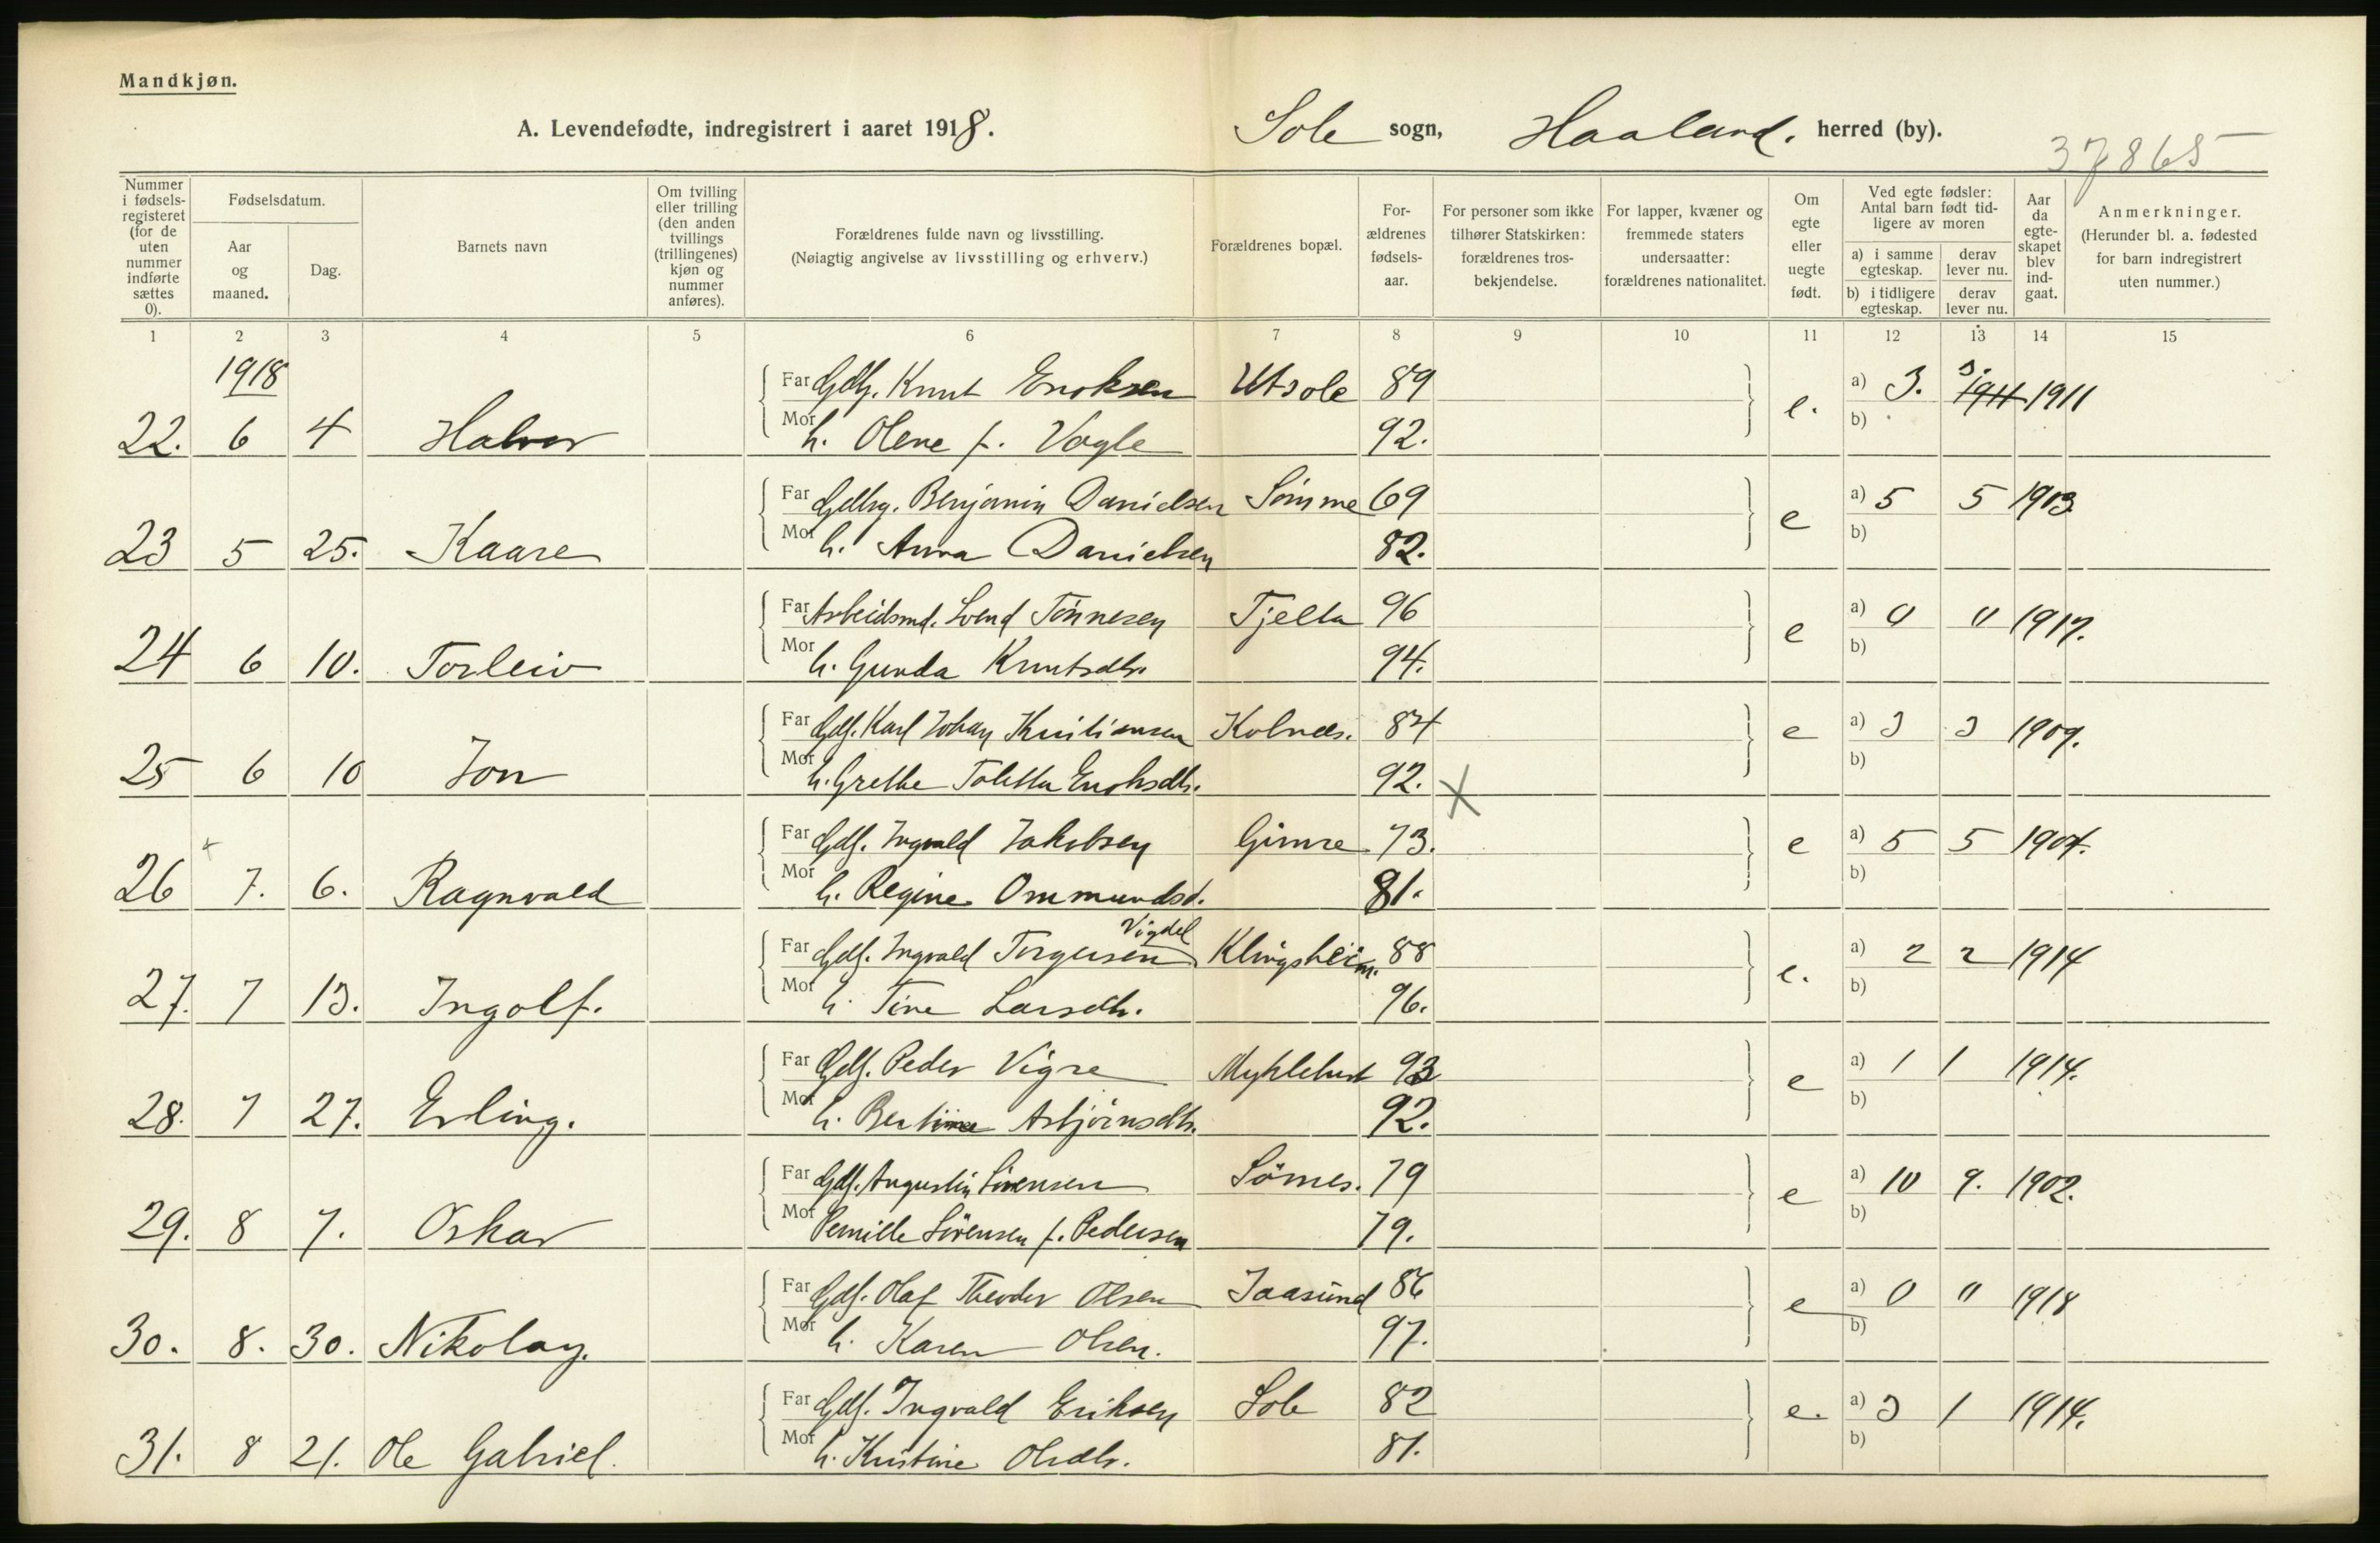 Mandkjøn.
A. Levendefødte, indregistrert i aaret 1918. Sole sogn, Haaland. herred (by).
37865
Nummer i fødsels-registeret (for de uten nummer indførte sættes 0).
Fødselsdatum.
Aar og maaned.
Dag.
Barnets navn
Om tvilling eller trilling (den anden tvillings (trillingenes) kjøn og nummer anføres).
Forældrenes fulde navn og livsstilling.
(Nøiagtig angivelse av livsstilling og erhverv.)
Forældrenes bopæl.
For-ældrenes fødsels-aar.
For personer som ikke tilhører Statskirken: forældrenes tros-bekjendelse.
For lapper, kvæner og fremmede staters undersaatter: forældrenes nationalitet.
Om egte eller uegte født.
Ved egte fødsler: Antal barn født tid-ligere av moren
a) i samme egteskap.
derav lever nu.
b) i tidligere egteskap.
derav lever nu.
Aar da egte-skapet blev ind-gaat.
Anmerkninger.
(Herunder bl. a. fødested for barn indregistrert uten nummer.)
1 2 3 4 5 6 7 8 9 10 11 12 13 14 15
1918
Far Gdbr. Knut Enoksen Utsole 89 e. a) 3. 3. 1911 1911
22. 6 4 Halvor Mor h. Olene f. Vagle 92. b)
Far Gdbrg. Benjamin Danielsen Sømme 69 e a) 5 5 1903
23 5 25. Kaare Mor h. Anna Danielsen 82. b)
Far Arbeidsmd. Svend Tønnesen Tjelta 96 e a) 0 0 1917.
24 6 10. Torleiv Mor h. Gunda Knutsdtr. 94. b)
Far Gdbr. Karl Johan Kristiansen Kolnes. 84 e a) 3 3 1909.
25 6 10 Jon Mor h. Grethe Toletta Enoksdtr. 92. b)
Far Gdbr. Ingvald Jakobsen Gimre 73. e a) 5 5 1904.
26 7. 6. Ragnvald Mor h. Regine Ommundsd. 81. b)
Far Gdbr. Ingvald Torgersen Vigdel Klingsheim. 88 e. a) 2 2 1914
27. 7 13. Ingolf. Mor h. Tine Larsdtr. 96. b)
Far Gdbr. Peder Vigre Myklebust 93 e a) 1 1 1914.
28. 7 27. Erling. Mor h. Bertine Asbjørnsdtr. 92. b)
Far Gdbr. Augustin Sörensen Sömes. 79 e a) 10 9. 1902.
29. 8 7. Oskar Mor Pernille Sörensen f. Pedersen 79. b)
Far Gdbr. Olaf Theodor Olsen Jaasund 86 e a) 0 0 1918
30. 8. 30. Nikolay. Mor h. Karen Olsen. 97. b)
Far Gdbr. Ingvald Eriksen Sole 82 e. a) 3 1 1914.
31. 8 21. Ole Gabriel. Mor h. Kristine Olsdtr. 81. b)